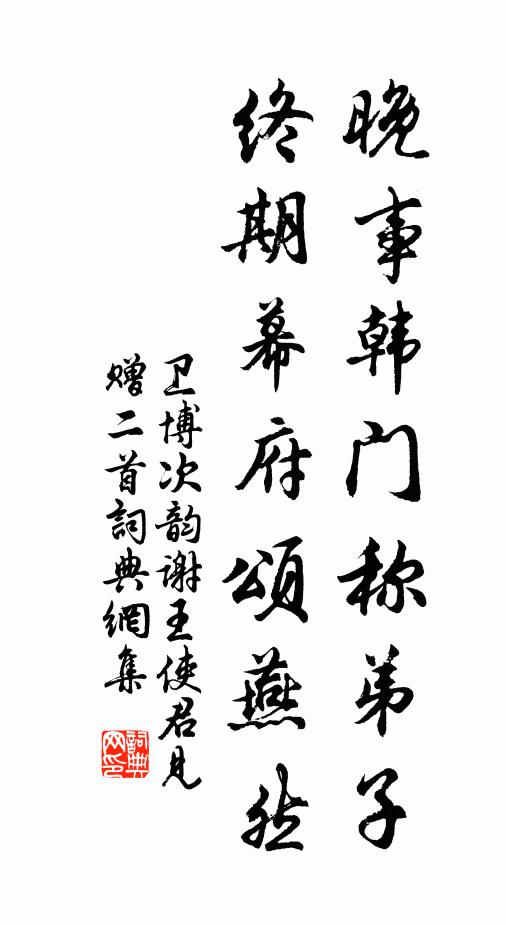 晚事韩门称弟子
终期幕府頌燕然
卫博次韵谢王使君见
赠二首詞典網集
詞典
网印